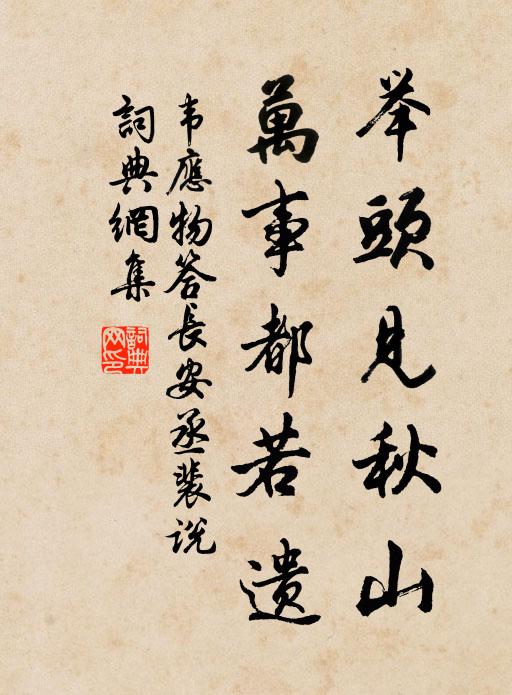 举頭見秋山
萬事都若遗
韦應物答長安丞裴说
詞典網集
詞典网印